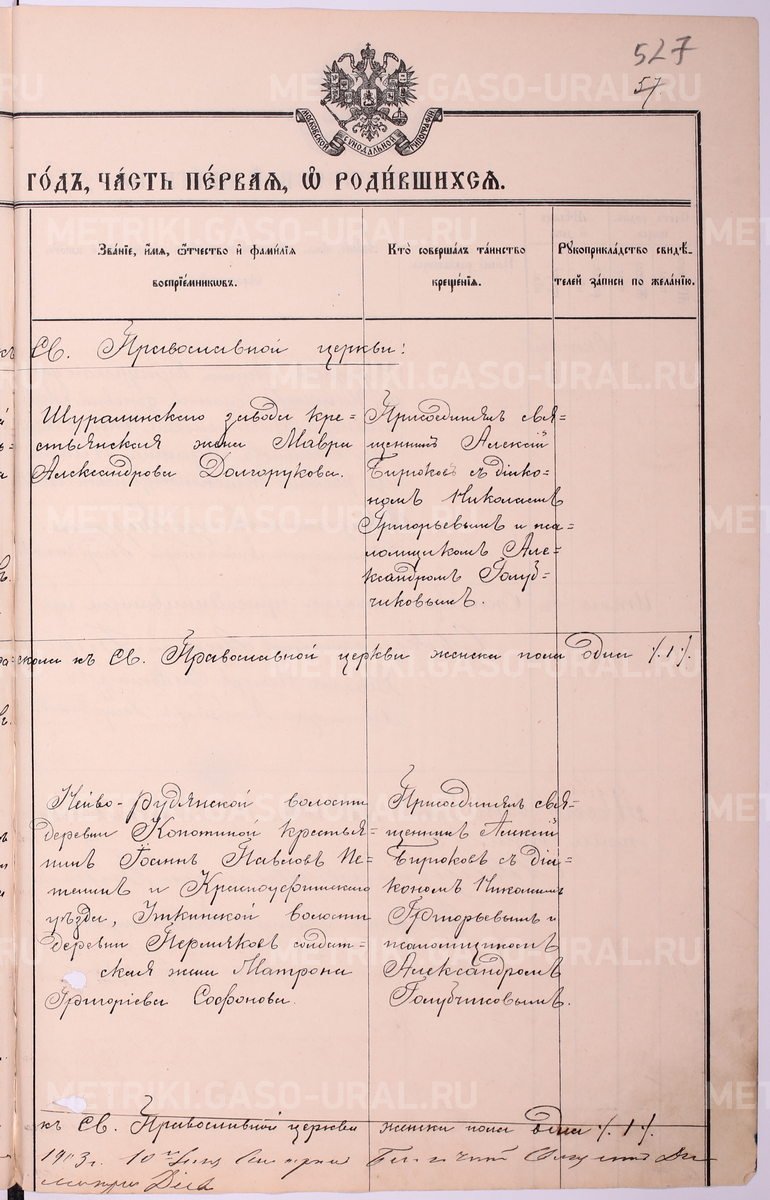 527
57.
МОСКОВСКОЙ СѴНОДАЛЬНОЙ ТИПОГРАФІИ
ГО́ДЪ, ЧА́СТЬ ПЕ́РВАЯ, Ѽ РОДИ́ВШИХСЯ.
Зва́нїе, и҆́мя, ѻ҆́тчество и҆ фами́лїя
воспрїе́мникѡвъ.
Кто̀ соверша́лъ та́инство
креще́нїя.
Рꙋкоприкла́дство свидѣ́-
телей за́писи по жела́нїю.
къ Св. Православной церкви:
Шуралинскаго завода кре=
стьянская жена Мавра
Александрова Долгорукова.
Присоединялъ свя=
щенникъ Алексій
Бирюковъ съ діако-
номъ Николаемъ
Григорьевымъ и пса=
ломщикомъ Але-
ксандромъ Голуб-
чиковымъ.
скола къ Св. Православной церкви женска пола одна /.1./.
Нейво-Рудянской волости
деревни Копотиной крестья=
нинъ Іоаннъ Павловъ
и Красноуфимскаго
уѣзда, Уткинской волости
деревни Пермяковъ солдат=
ская жена Матрона
Григоріева Софонова.
Присоединялъ свя-
щенникъ Алексій
Бирюковъ съ діа-
кономъ Николаемъ
Григорьевымъ и
псаломщикомъ
Александромъ
Голубчиковымъ.
къ Св. Православной церкви женска пола одна /.1./.
1903 г. 10
METRIKI.GASO-URAL.RU